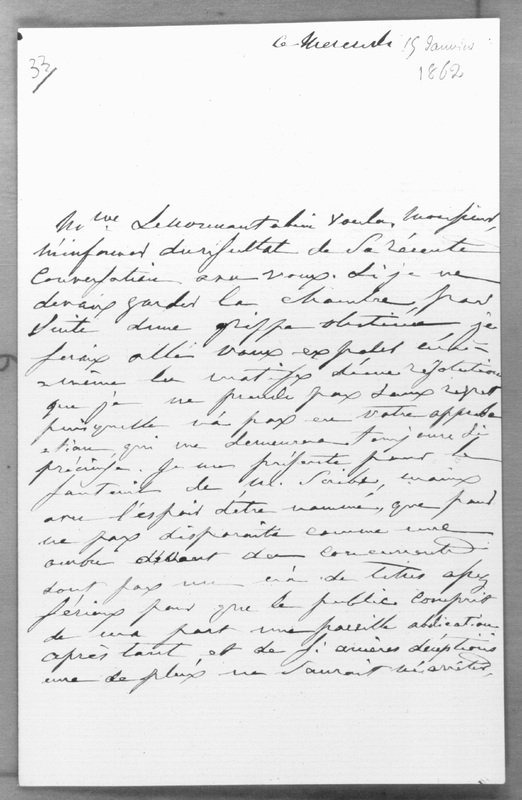 Ce Mercredi 15 Janvier
1862
33
Mme Lenormant a bien voulu, Monsieur,
m'informer du résultat de sa récente
conversation avec vous. Si je ne
devais garder la chambre, par
suite d'une grippe obstinée, je
serais allé vous exposer
même les motifs d'une résolution
que je ne prends pas sans regret
puisqu'elle n'a pas eu votre approba
-tion, qui me demeurera toujours si
précieuse. Je me présente pour le
fauteuil de M. Scribe, moins
avec l'espoir d'être nommé, que pour
ne pas disparaître comme une
ombre devant des concurrents
dont pas un n'a de titres assez
sérieux pour que le public comprit
de ma part une pareille abdication
après tant et de si amères déceptions
une de plus ne saurait m'arrêter,